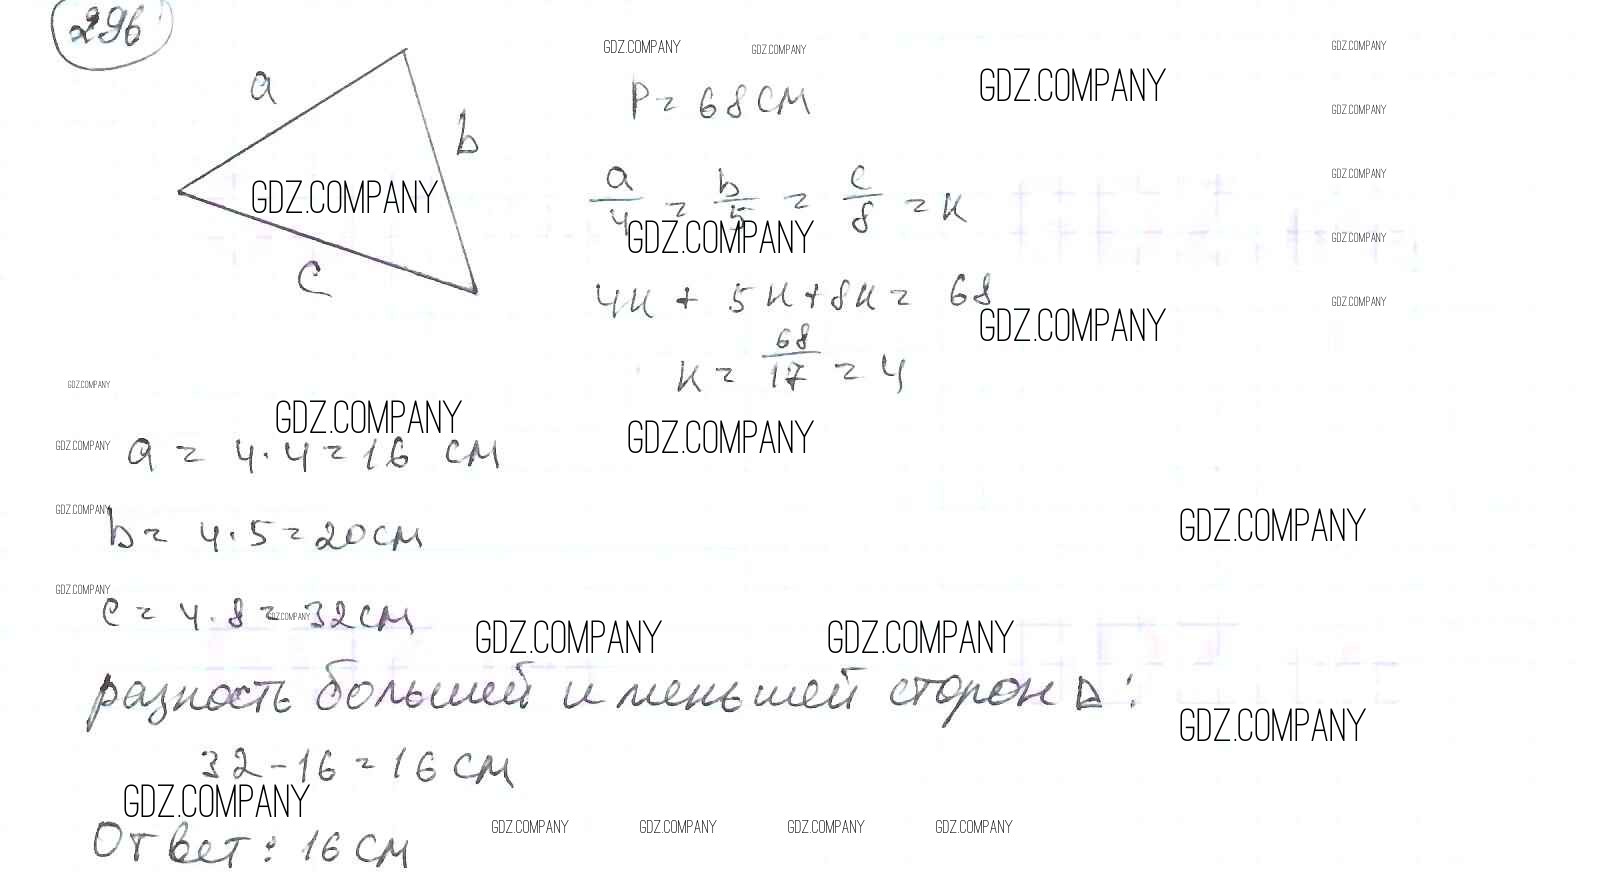 296
GDZ.COMPANY GDZ.COMPANY GDZ.COMPANY
a
P = 68 см GDZ.COMPANY
GDZ.COMPANY
b
GDZ.COMPANY
a/4 = b/5 = c/8 = к
GDZ.COMPANY
GDZ.COMPANY GDZ.COMPANY
c
4к + 5к + 8к = 68
GDZ.COMPANY
GDZ.COMPANY
к = 68/17 = 4
GDZ.COMPANY
GDZ.COMPANY GDZ.COMPANY
GDZ.COMPANY
a = 4·4 = 16 см
GDZ.COMPANY
b = 4·5 = 20 см
GDZ.COMPANY
GDZ.COMPANY
c = 4·8 = 32 см
GDZ.COMPANY
GDZ.COMPANY GDZ.COMPANY
разность большей и меньшей сторон Δ:
GDZ.COMPANY
32 - 16 = 16 см
GDZ.COMPANY
GDZ.COMPANY GDZ.COMPANY GDZ.COMPANY GDZ.COMPANY
Ответ: 16 см